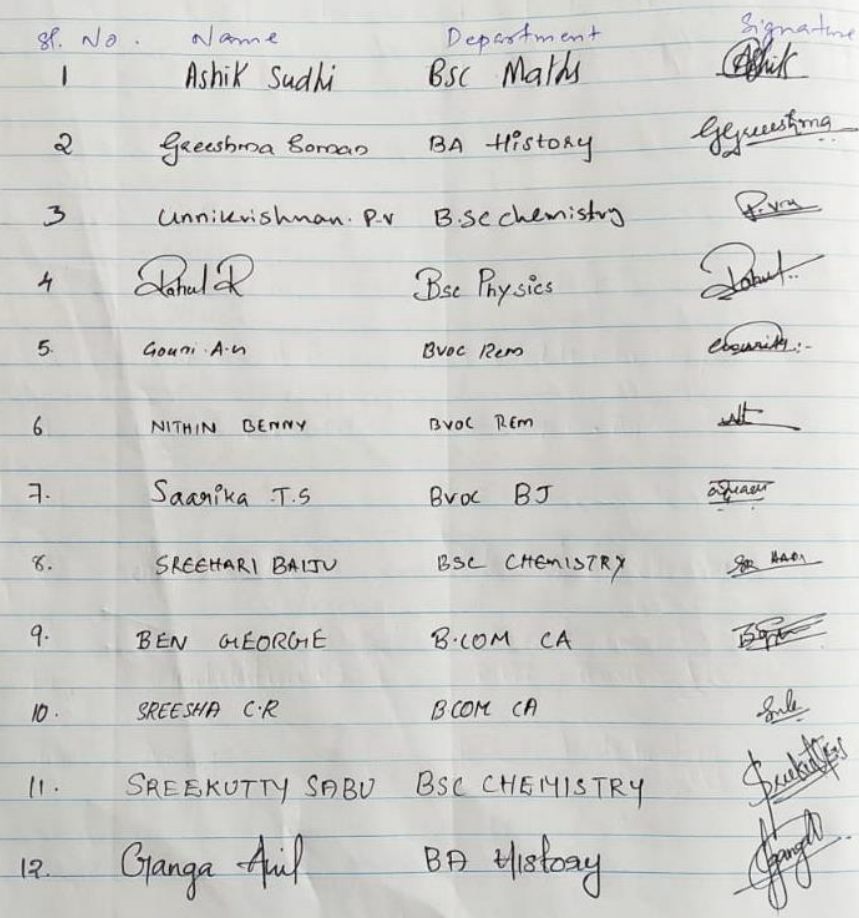 Sl. No. Name Department Signature
1 Ashik Sudhi BSc Maths Ashik
2 Greeshma Soman BA History Greeshma
3 Unnikrishnan. P.V B.Sc chemistry
4 Rahul R Bsc Physics Rahul..
5. Gouri A.n Bvoc Rem
6 NITHIN BENNY BVOC REM
7. Saarika T.S Bvoc BJ
8. SREEHARI BAIJU BSC CHEMISTRY
9. BEN GEORGIE B.COM CA
10. SREESHA C.R BCOM CA
11. SREEKUTTY SABU BSC CHEMISTRY Sreekutty
12. Ganga Anil BA History Ganga